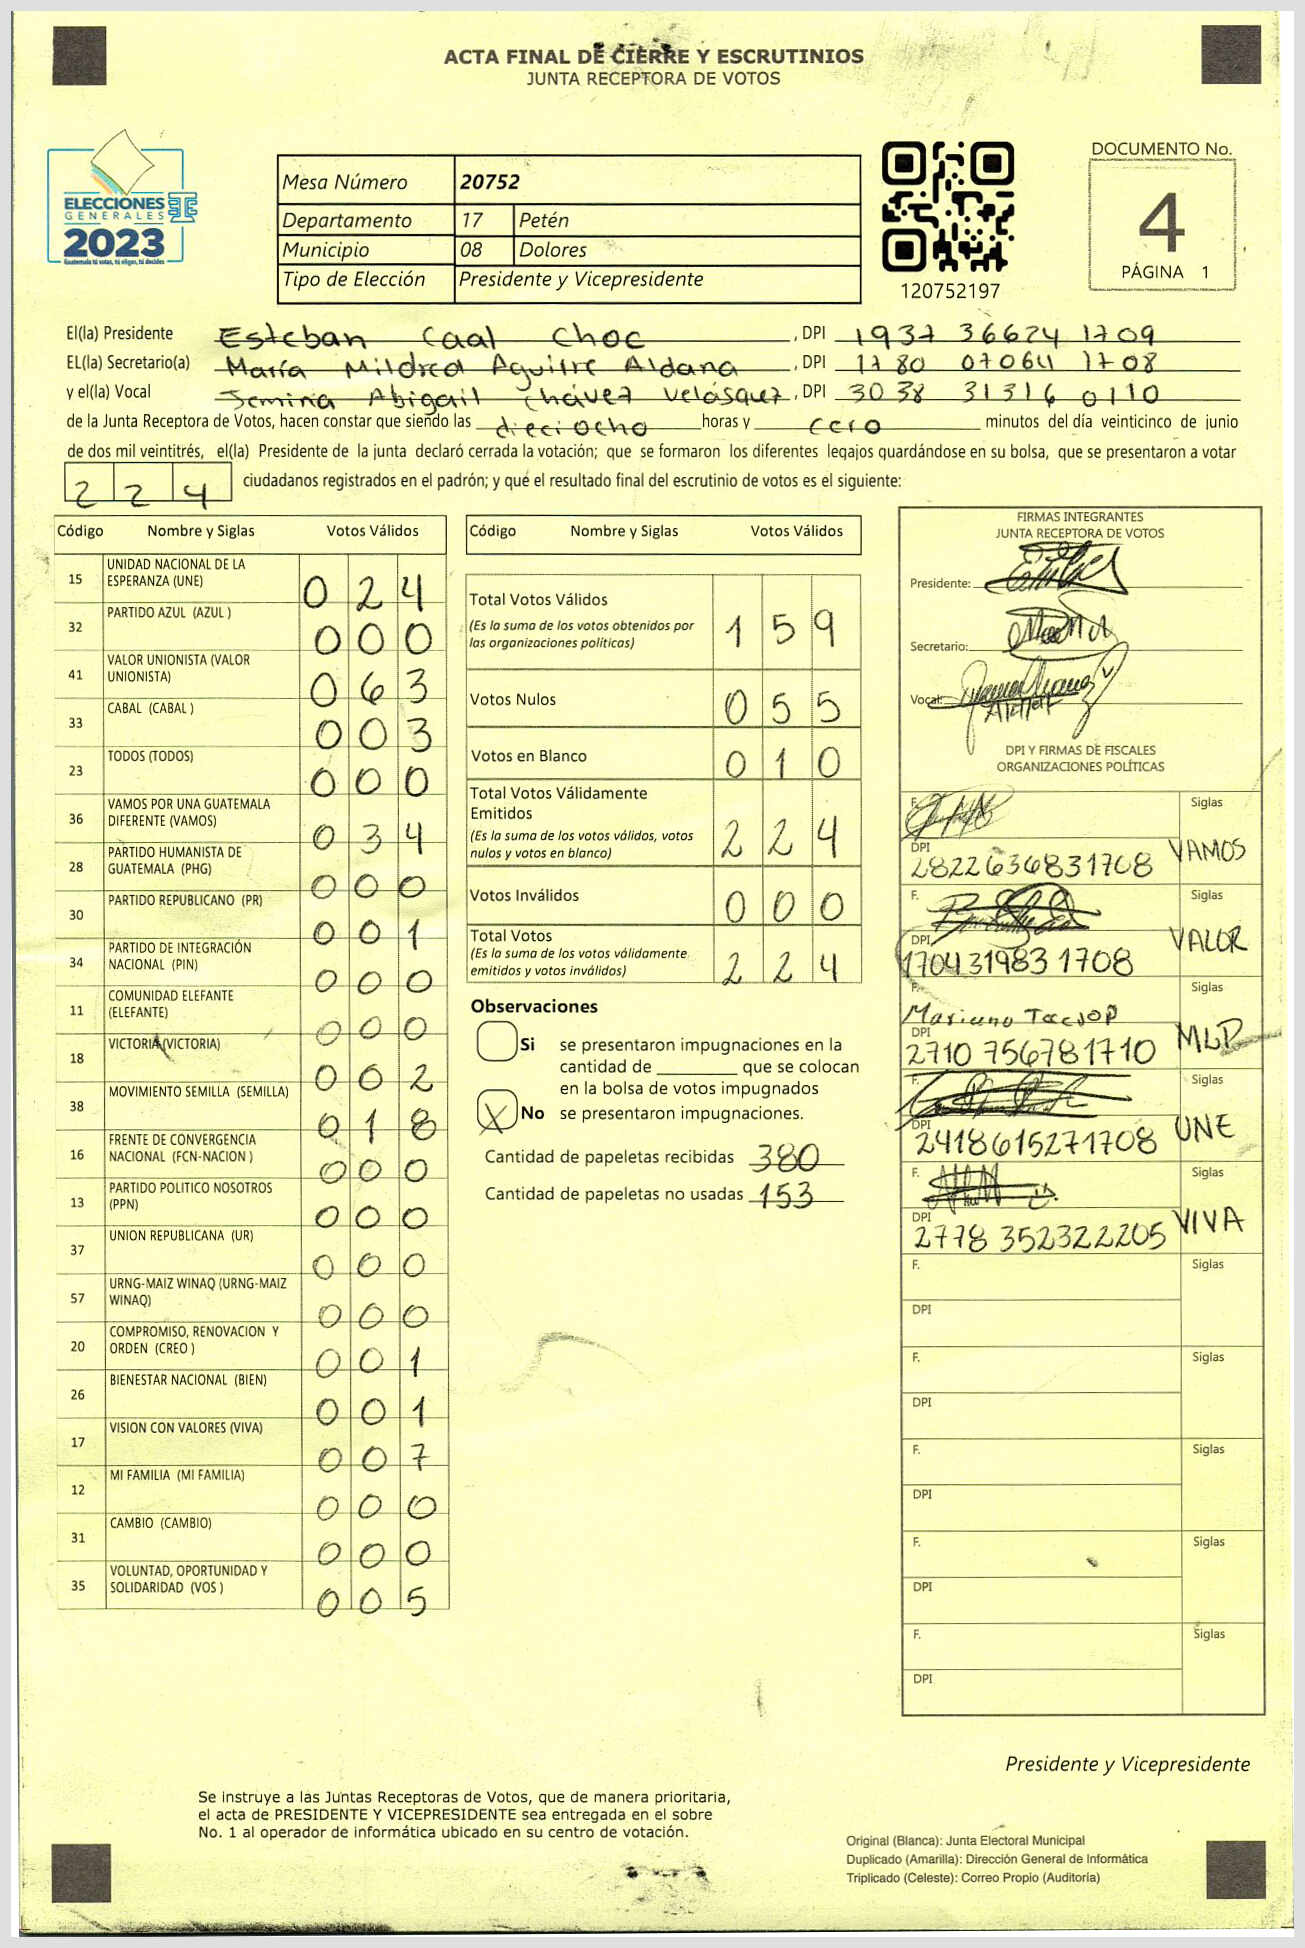 ACTA FINAL DE CIERRE Y ESCRUTINIOS
JUNTA RECEPTORA DE VOTOS
ELECCIONES
GENERALES
2023
Guatemala tú votas, tú eliges, tú decides
Mesa Número 20752
Departamento 17 Petén
Municipio 08 Dolores
Tipo de Elección Presidente y Vicepresidente
120752197
DOCUMENTO No.
4
PÁGINA 1
El(la) Presidente Esteban Caal Choc, DPI 1937 36624 1709
EL(la) Secretario(a) María Mildred Aguirre Aldana, DPI 1780 07064 1708
y el(la) Vocal Jemina Abigail Chávez Velásquez, DPI 3038 31316 0110
de la Junta Receptora de Votos, hacen constar que siendo las dieciocho horas y cero minutos del día veinticinco de junio
de dos mil veintitrés, el(la) Presidente de la junta declaró cerrada la votación; que se formaron los diferentes legajos quardándose en su bolsa, que se presentaron a votar
2 2 4 ciudadanos registrados en el padrón; y qué el resultado final del escrutinio de votos es el siguiente:
Código Nombre y Siglas Votos Válidos
15 UNIDAD NACIONAL DE LA ESPERANZA (UNE) 0 2 4
32 PARTIDO AZUL (AZUL ) 0 0 0
41 VALOR UNIONISTA (VALOR UNIONISTA) 0 6 3
33 CABAL (CABAL ) 0 0 3
23 TODOS (TODOS) 0 0 0
36 VAMOS POR UNA GUATEMALA DIFERENTE (VAMOS) 0 3 4
28 PARTIDO HUMANISTA DE GUATEMALA (PHG) 0 0 0
30 PARTIDO REPUBLICANO (PR) 0 0 1
34 PARTIDO DE INTEGRACIÓN NACIONAL (PIN) 0 0 0
11 COMUNIDAD ELEFANTE (ELEFANTE) 0 0 0
18 VICTORIA (VICTORIA) 0 0 2
38 MOVIMIENTO SEMILLA (SEMILLA) 0 1 8
16 FRENTE DE CONVERGENCIA NACIONAL (FCN-NACION ) 0 0 0
13 PARTIDO POLITICO NOSOTROS (PPN) 0 0 0
37 UNION REPUBLICANA (UR) 0 0 0
57 URNG-MAIZ WINAQ (URNG-MAIZ WINAQ) 0 0 0
20 COMPROMISO, RENOVACION Y ORDEN (CREO ) 0 0 1
26 BIENESTAR NACIONAL (BIEN) 0 0 1
17 VISION CON VALORES (VIVA) 0 0 7
12 MI FAMILIA (MI FAMILIA) 0 0 0
31 CAMBIO (CAMBIO) 0 0 0
35 VOLUNTAD, OPORTUNIDAD Y SOLIDARIDAD (VOS ) 0 0 5
Código Nombre y Siglas Votos Válidos
Total Votos Válidos 1 5 9
(Es la suma de los votos obtenidos por
las organizaciones políticas)
Votos Nulos 0 5 5
Votos en Blanco 0 1 0
Total Votos Válidamente
Emitidos 2 2 4
(Es la suma de los votos válidos, votos
nulos y votos en blanco)
Votos Inválidos 0 0 0
Total Votos 2 2 4
(Es la suma de los votos válidamente
emitidos y votos inválidos)
Observaciones
Si se presentaron impugnaciones en la
cantidad de ________ que se colocan
en la bolsa de votos impugnados
X No se presentaron impugnaciones.
Cantidad de papeletas recibidas 380
Cantidad de papeletas no usadas 153
FIRMAS INTEGRANTES
JUNTA RECEPTORA DE VOTOS
Presidente:
Secretario:
Vocal:
DPI Y FIRMAS DE FISCALES
ORGANIZACIONES POLÍTICAS
F. Siglas
DPI 2822636831708 VAMOS
F. Siglas
DPI 1704319831708 VALOR
F. Mariano Siglas
DPI 2710 756781710 MLP
F. Siglas
DPI 2418615271708 UNE
F. Siglas
DPI 2778 352322205 VIVA
F. Siglas
DPI
F. Siglas
DPI
F. Siglas
DPI
F. Siglas
DPI
F. Siglas
DPI
Presidente y Vicepresidente
Se instruye a las Juntas Receptoras de Votos, que de manera prioritaria,
el acta de PRESIDENTE Y VICEPRESIDENTE sea entregada en el sobre
No. 1 al operador de informática ubicado en su centro de votación.
Original (Blanca): Junta Electoral Municipal
Duplicado (Amarilla): Dirección General de Informática
Triplicado (Celeste): Correo Propio (Auditoría)